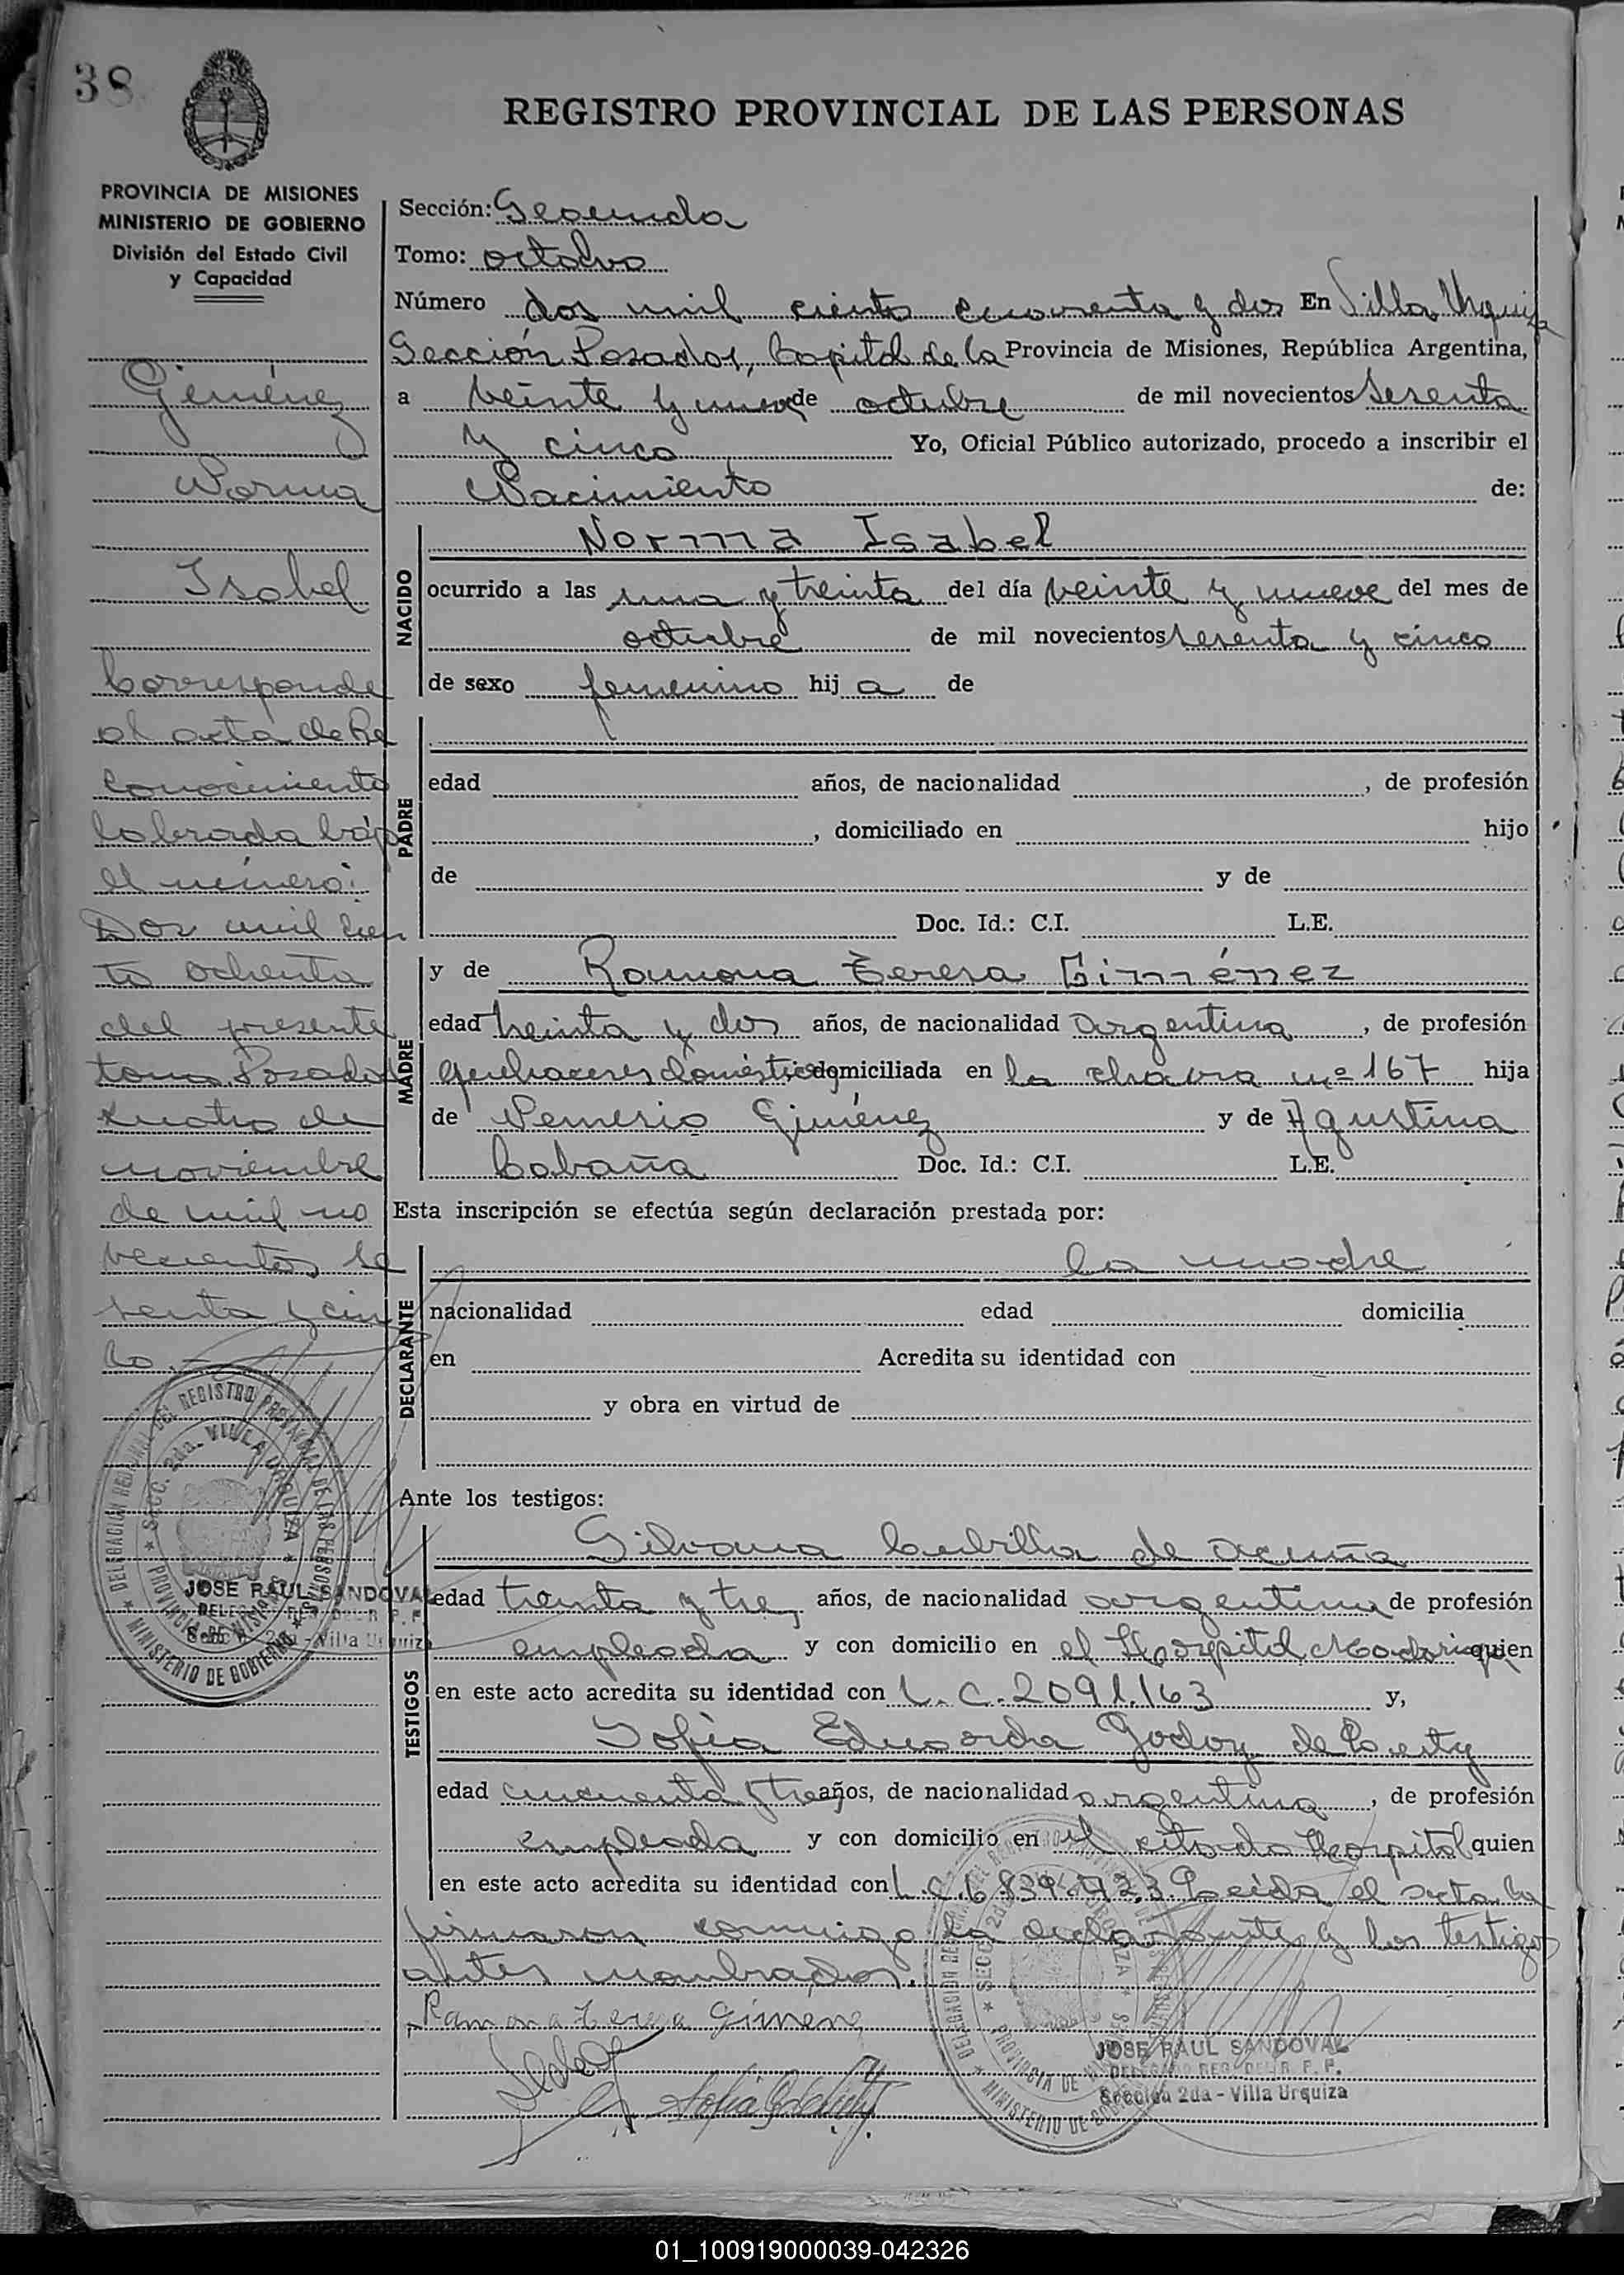 38
REGISTRO PROVINCIAL DE LAS PERSONAS
PROVINCIA DE MISIONES
MINISTERIO DE GOBIERNO
División del Estado Civil
y Capacidad
Giménez
Norma
Isabel
Corresponde
al acta de Re
conocimiento
labrada bajo
el número:
Dos mil cien
to ochenta
del presente
tomo Posadas
cuatro de
noviembre
de mil no
vecientos se
senta y cin
co.-
Sección: Segunda
Tomo: octavo
Número dos mil ciento cuarenta y dos En Villa Urquiza
Sección Posadas, Capital de la Provincia de Misiones, República Argentina,
a veinte y nueve de octubre de mil novecientos sesenta
y cinco Yo, Oficial Público autorizado, procedo a inscribir el
Nacimiento de:
NACIDO
Norma Isabel
ocurrido a las una y treinta del día veinte y nueve del mes de
octubre de mil novecientos sesenta y cinco
de sexo femenino hij a de
PADRE
edad años, de nacionalidad , de profesión
, domiciliado en hijo
de y de
Doc. Id.: C.I. L.E.
MADRE
y de Ramona Teresa Giménez
edad treinta y dos años, de nacionalidad argentina , de profesión
quehaceres domésticos domiciliada en la chacra nº 167 hija
de Nemesio Giménez y de Agustina
Cabaña Doc. Id.: C.I. L.E.
Esta inscripción se efectúa según declaración prestada por:
DECLARANTE
la madre
nacionalidad edad domicilia
en Acredita su identidad con
y obra en virtud de
Ante los testigos:
TESTIGOS
Silvana Cubilla de Acuña
edad treinta y tres años, de nacionalidad argentina de profesión
empleada y con domicilio en el Hospital Madariaga quien
en este acto acredita su identidad con L.C. 2091.163 y,
Sofia Eduarda Godoy de
edad cincuenta y tres años, de nacionalidad argentina , de profesión
empleada y con domicilio en el citado Hospital quien
en este acto acredita su identidad con L.C. Leída el acta la
firmaron conmigo la declarante y los testigos
antes nombrados.
Ramona Teresa Gimenez
DELEGACION REGIONAL DEL REGISTRO PROVINCIAL DE LAS PERSONAS
SECC. 2da. VILLA URQUIZA
PROVINCIA DE MISIONES
MINISTERIO DE GOBIERNO
JOSE RAUL SANDOVAL
DELEGADO REG. DEL R. P. P.
Sección 2da - Villa Urquiza
JOSE RAUL SANDOVAL
DELEGADO REG. DEL R. P. P.
Sección 2da - Villa Urquiza
01_100919000039-042326